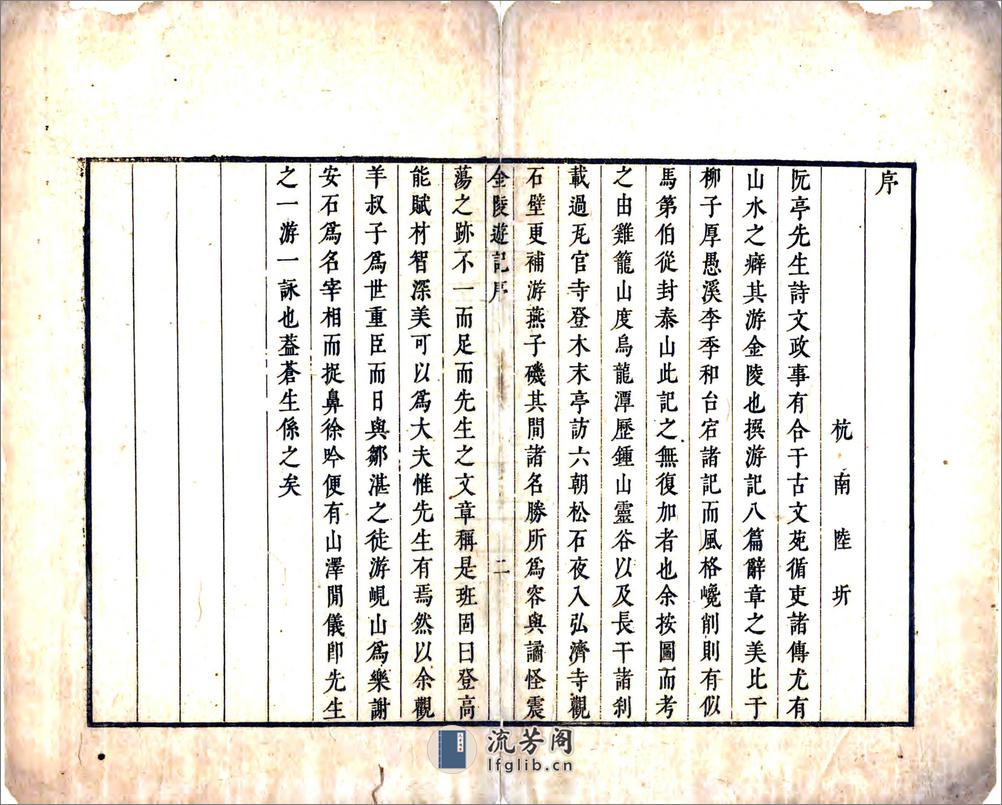 序
杭南陸圻
阮亭先生詩文政事有合于古文苑循吏諸傳尤有
山水之癖其游金陵也撰游記八篇辭章之美比于
柳子厚愚溪李季和台宕諸記而風格巉削則有似
馬第伯從封泰山此記之無復加者也余按圖而考
之由雞籠山度烏龍潭歷鍾山靈谷以及長干諸刹
載過瓦官寺登木末亭訪六朝松石夜入弘濟寺觀
石壁更補游燕子磯其間諸名勝所爲容與譎怪震
金陵遊記序 二
蕩之跡不一而足而先生之文章稱是班固曰登高
能賦材智深美可以爲大夫惟先生有焉然以余觀
羊叔子爲世重臣而日與鄒湛之徒游峴山爲樂謝
安石爲名宰相而捉鼻徐吟便有山澤閒儀卽先生
之一游一詠也葢蒼生係之矣
流芳阁
lfglib.cn